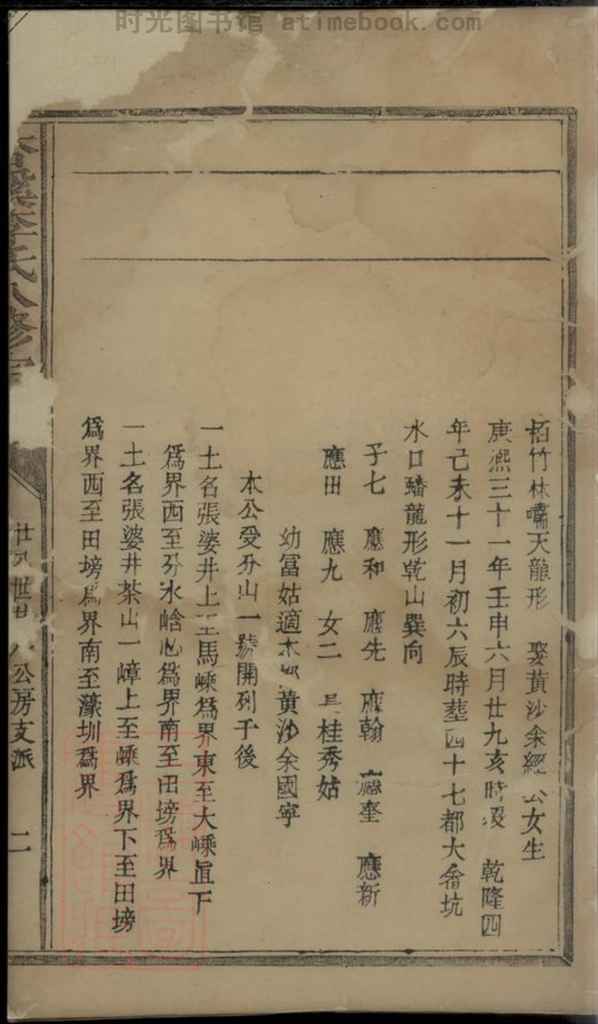 时光图书馆 atimebook.com
栢竹林嘯天龍形 娶黃沙余經公女生
庚熙三十一年壬申六月廿九亥時歿 乾隆四
年己未十一月初六辰時塟四十七都大畨坑
水口蟠龍形乾山巽向
子七 應和 應先 應翰 應奎 應新
應田 應九 女二 長桂秀姑
幼富姑適本都黃沙余國寧
本公受分山一號開列于後
一土名張婆井上至馬嵊爲界東至大嵊直下
爲界西至分水峆心爲界南至田塝爲界
一土名張婆井茶山一嶂上至嵊爲界下至田塝
爲界西至田塝爲界南至濠圳爲界
李氏八修宗
廿九世 公房支派 二